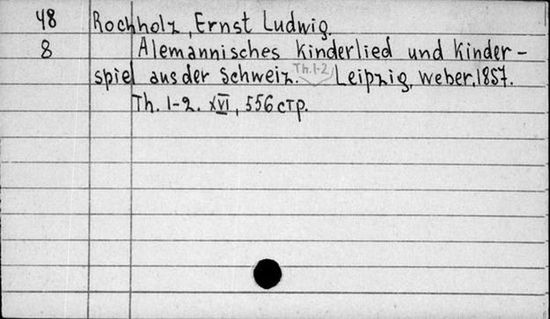 48 Rochholz, Ernst Ludwig.
8 Alemannisches Kinderlied und Kinder-
spiel aus der Schweiz. Th. 1-2 Leipzig, Weber, 1857.
Th. 1-2. XVI, 556 стр.